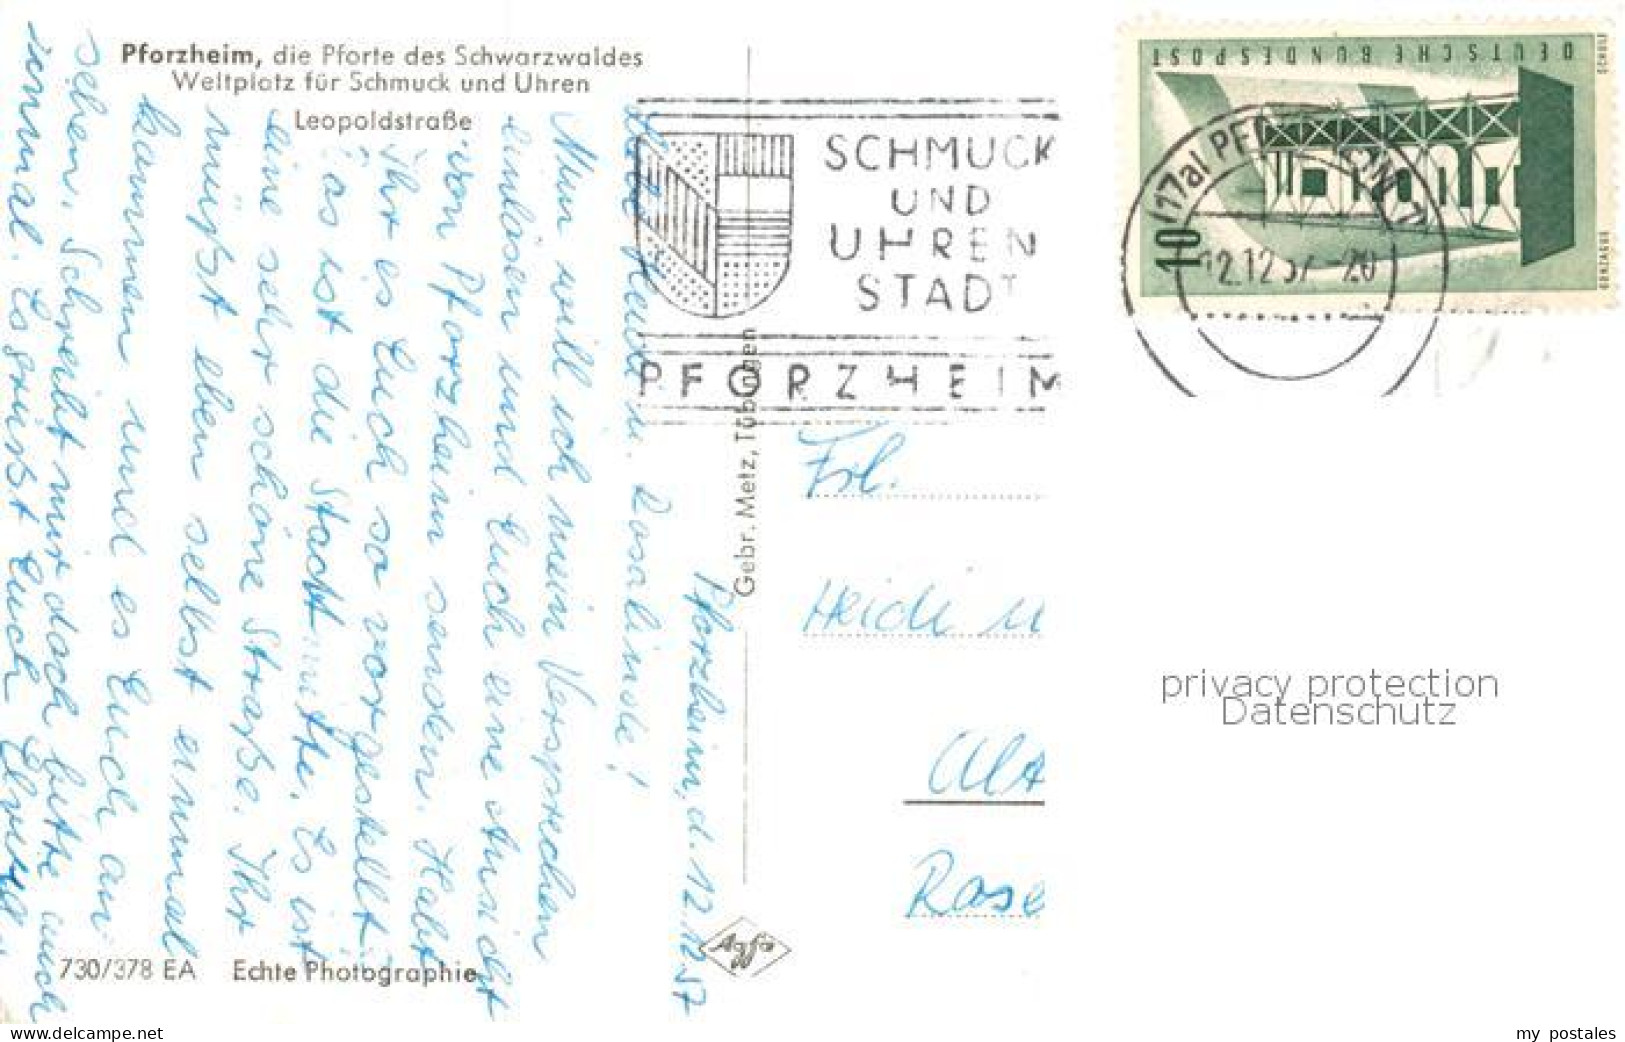 Pforzheim, die Pforte des Schwarzwaldes
Weltplatz für Schmuck und Uhren
Leopoldstraße
Pforzheim, d. 12.12.57
Heidi u. Rosalinde!
Nun will ich mein Versprechen
einlösen und Euch eine Ansicht
von Pforzheim senden. Habt
Ihr es Euch so vorgestellt?
Das ist die Stadtmitte. Es ist
eine sehr schöne Straße. Ihr
müßt eben selbst einmal
kommen und es Euch an-
sehen. Schreibt mir doch bitte auch
einmal. Es grüßt Euch
730/378 EA Echte Photographie
Gebr. Metz, Tübingen
Agfa
SCHMUCK
UND
UHREN
STADT
PFORZHEIM
DEUTSCHE BUNDESPOST
10
SCHULE
GONZAGUE
(17a) PFORZHEIM
12.12.57-20
Frl.
Heidi u
Alt
Rose
privacy protection
Datenschutz
delcampe.net
my_postales